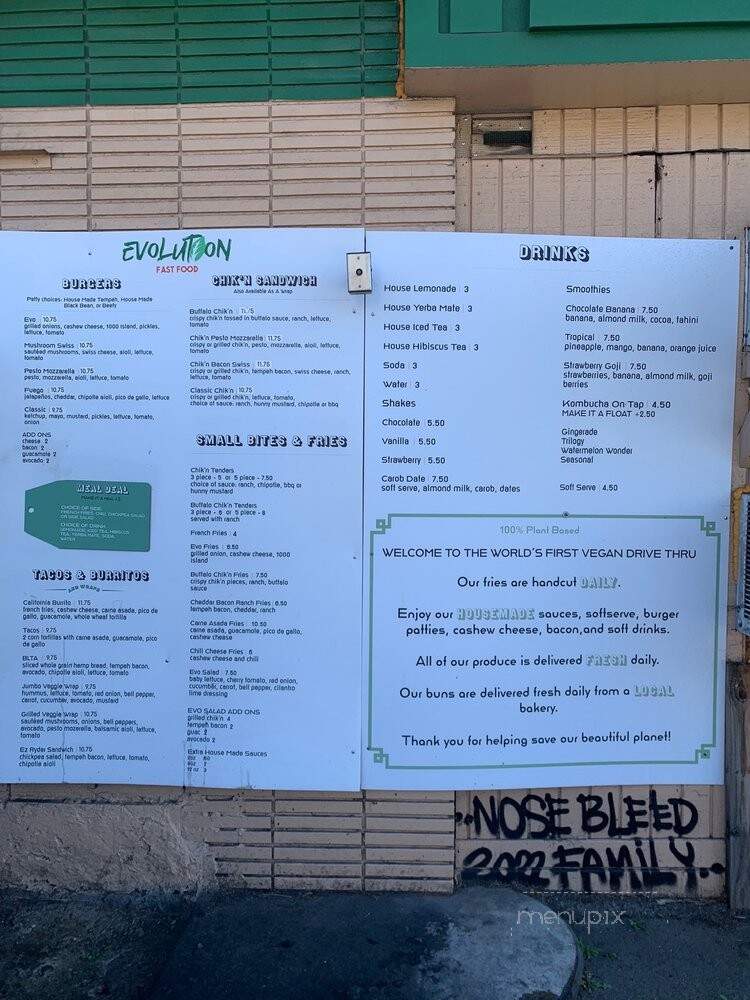 EVOLUTION
FAST FOOD
BURGERS
Patty choices: House Made Tempeh, House Made
Black Bean, or Beefy
Evo | 10.75
grilled onions, cashew cheese, 1000 island, pickles,
lettuce, tomato
Mushroom Swiss | 10.75
sautéed mushrooms, swiss cheese, aioli, lettuce,
tomato
Pesto Mozzarella | 10.75
pesto, mozzarella, aioli, lettuce, tomato
Fuego | 10.75
jalapeños, cheddar, chipotle aioli, pico de gallo, lettuce
Classic | 9.75
ketchup, mayo, mustard, pickles, lettuce, tomato,
onion
ADD ONS
cheese 2
bacon 2
guacamole 2
avocado 2
MEAL DEAL
CHOICE OF SIDE
FRENCH FRIES, CHILI, CHICKPEA SALAD
OR SIDE SALAD
CHOICE OF DRINK
LEMONADE, ICED TEA, HIBISCUS
TEA, YERBA MATE, SODA,
WATER
TACOS & BURRITOS
AND WRAPS
California Burrito | 11.75
french fries, cashew cheese, carne asada, pico de
gallo, guacamole, whole wheat tortilla
Tacos | 9.75
2 corn tortillas with carne asada, guacamole, pico
de gallo
BLTA | 9.75
sliced whole grain hemp bread, tempeh bacon,
avocado, chipotle aioli, lettuce, tomato
Jumbo Veggie Wrap | 9.75
hummus, lettuce, tomato, red onion, bell pepper,
carrot, cucumber, avocado, mustard
Grilled Veggie Wrap | 10.75
sautéed mushrooms, onions, bell peppers,
avocado, pesto mozarella, balsamic aioli, lettuce,
tomato
Ez Ryder Sandwich | 10.75
chickpea salad, tempeh bacon, lettuce, tomato,
chipotle aioli
CHIK'N SANDWICH
Also Available As A Wrap
Buffalo Chik'n | 11.75
crispy chik'n tossed in buffalo sauce, ranch, lettuce,
tomato
Chik'n Pesto Mozzarella | 11.75
crispy or grilled chik'n, pesto, mozzarella, aioli, lettuce,
tomato
Chik'n Bacon Swiss | 11.75
crispy or grilled chik'n, tempeh bacon, swiss cheese, ranch,
lettuce, tomato
Classic Chik'n | 10.75
crispy or grilled chik'n, lettuce, tomato,
choice of sauce: ranch, hunny mustard, chipotle or bbq
SMALL BITES & FRIES
Chik'n Tenders
3 piece - 5 or 5 piece - 7.50
choice of sauce: ranch, chipotle, bbq or
hunny mustard
Buffalo Chik'n Tenders
3 piece - 6 or 5 piece - 8
served with ranch
French Fries | 4
Evo Fries | 6.50
grilled onion, cashew cheese, 1000
island
Buffalo Chik'n Fries | 7.50
crispy chik'n pieces, ranch, buffalo
sauce
Cheddar Bacon Ranch Fries | 6.50
tempeh bacon, cheddar, ranch
Carne Asada Fries | 10.50
carne asada, guacamole, pico de gallo,
cashew cheese
Chili Cheese Fries | 8
cashew cheese and chili
Evo Salad | 7.50
baby lettuce, cherry tomato, red onion,
cucumber, carrot, bell pepper, cilantro
lime dressing
EVO SALAD ADD ONS
grilled chik'n 4
tempeh bacon 2
guac 2
avocado 2
Extra House Made Sauces
DRINKS
House Lemonade | 3
House Yerba Mate | 3
House Iced Tea | 3
House Hibiscus Tea | 3
Soda | 3
Water | 3
Shakes
Chocolate | 5.50
Vanilla | 5.50
Strawberry | 5.50
Carob Date | 7.50
soft serve, almond milk, carob, dates
Smoothies
Chocolate Banana | 7.50
banana, almond milk, cocoa, tahini
Tropical | 7.50
pineapple, mango, banana, orange juice
Strawberry Goji | 7.50
strawberries, banana, almond milk, goji
berries
Kombucha On Tap | 4.50
MAKE IT A FLOAT +2.50
Gingerade
Trilogy
Watermelon Wonder
Seasonal
Soft Serve | 4.50
100% Plant Based
WELCOME TO THE WORLD'S FIRST VEGAN DRIVE THRU
Our fries are handcut DAILY.
Enjoy our HOUSEMADE sauces, softserve, burger
patties, cashew cheese, bacon,and soft drinks.
All of our produce is delivered FRESH daily.
Our buns are delivered fresh daily from a LOCAL
bakery.
Thank you for helping save our beautiful planet!
NOSE BLEED
2022 FAMILY..
menupix